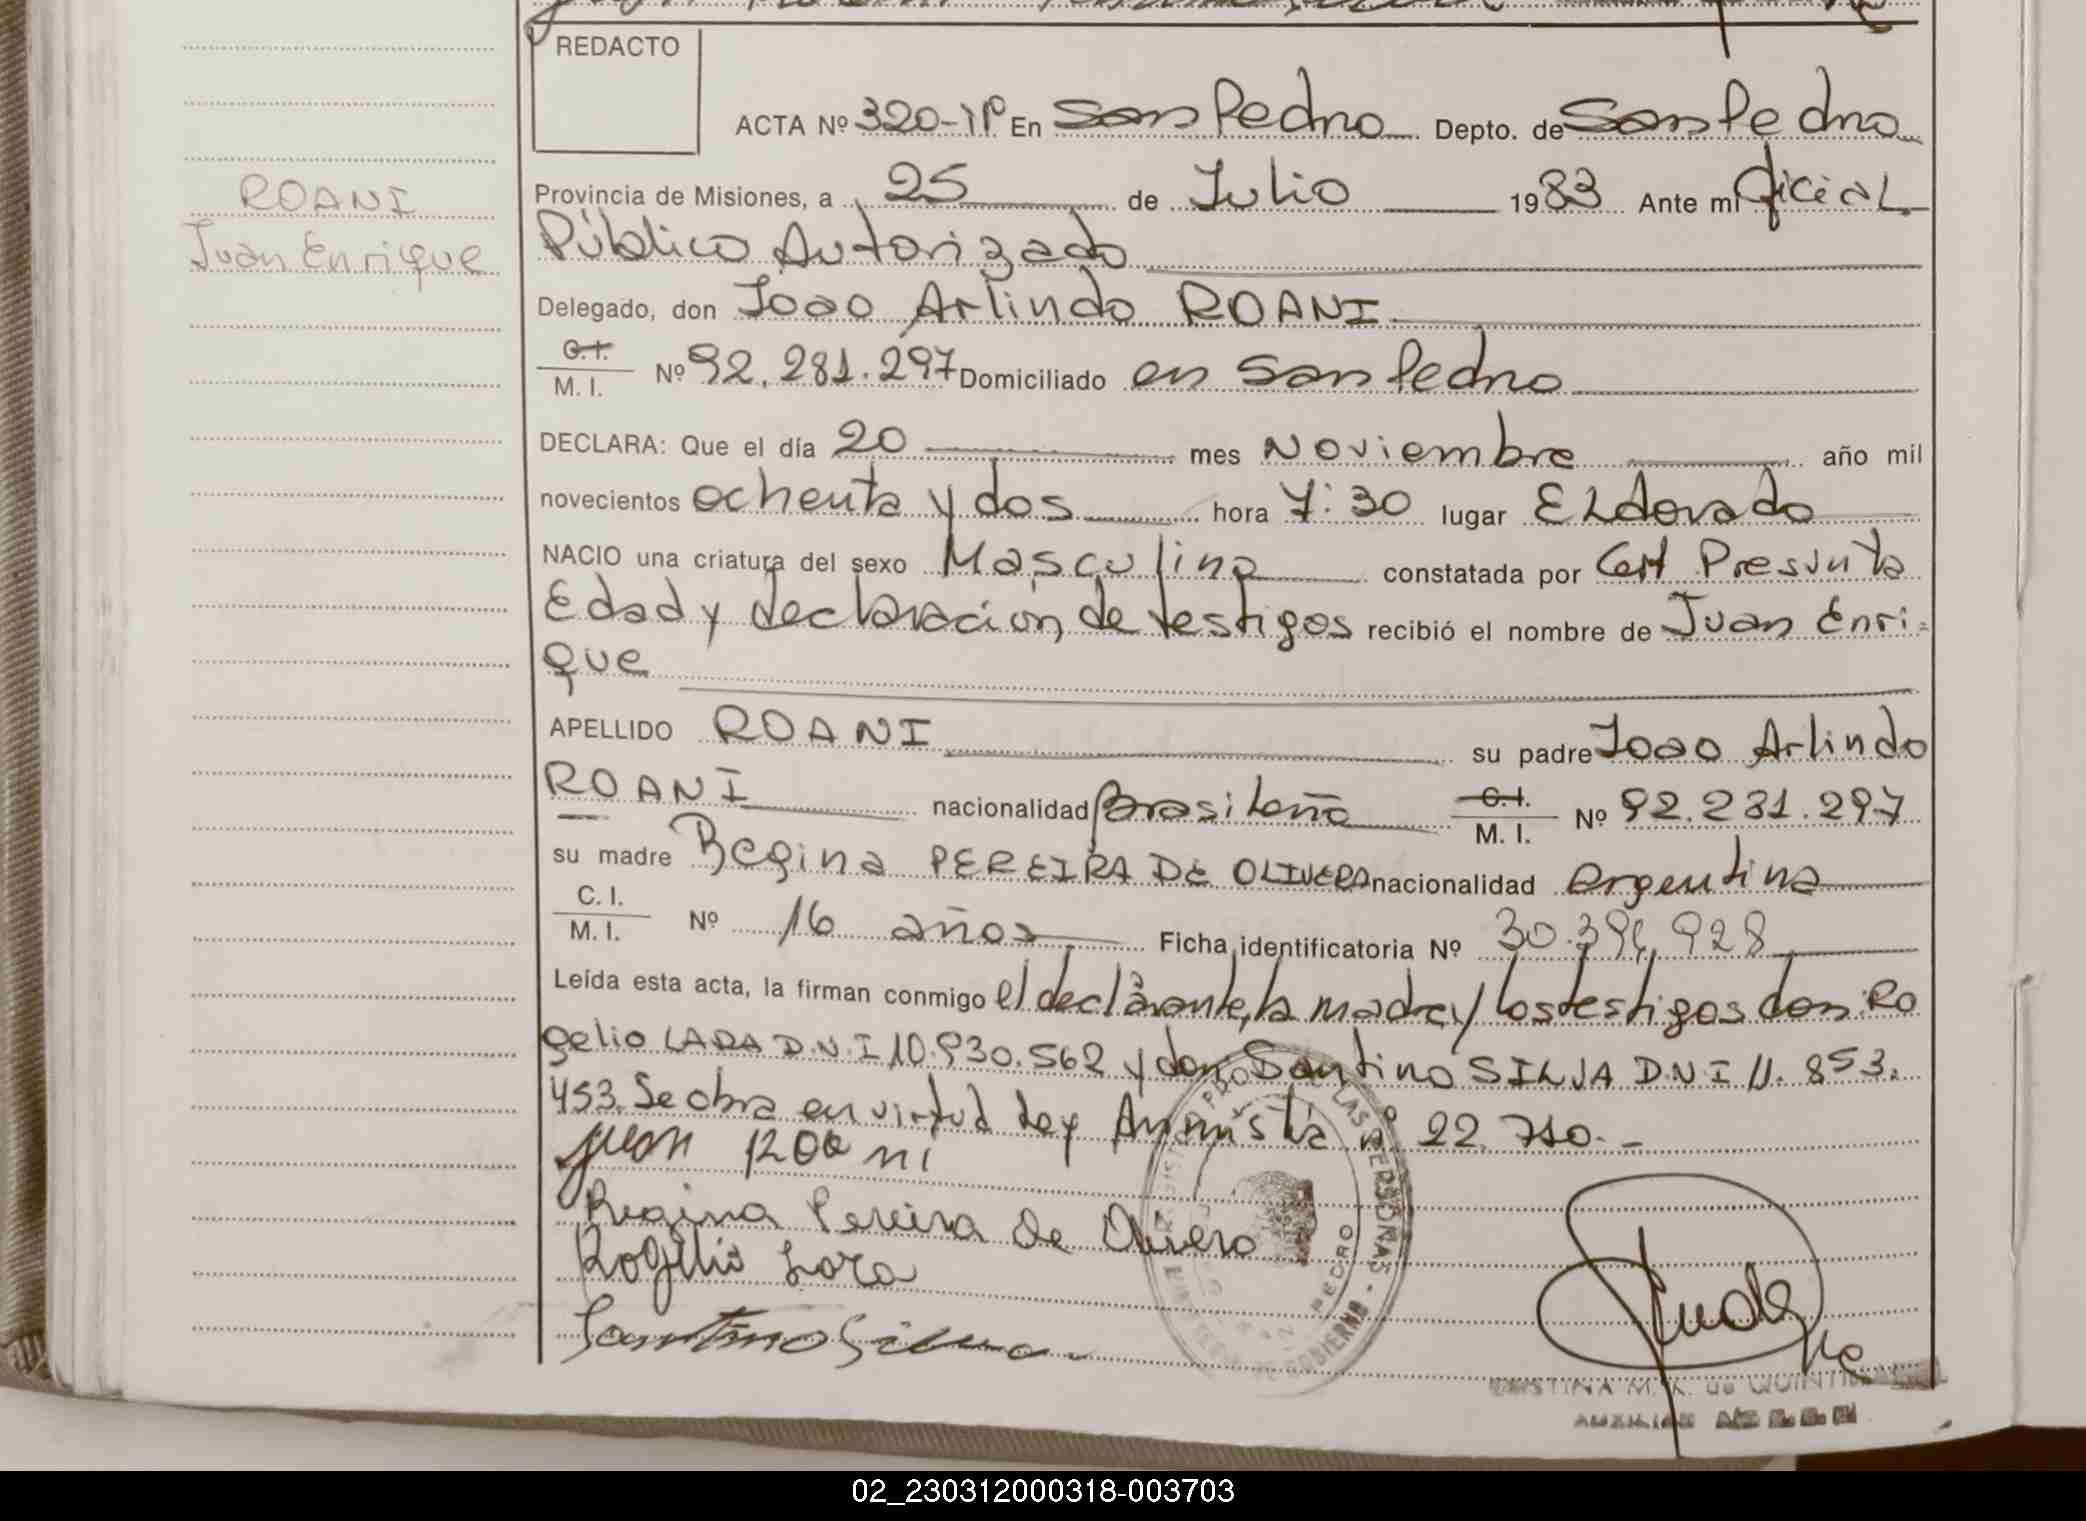 REDACTO
ACTA Nº 320-1P En San Pedro Depto. de San Pedro
ROANI
Juan Enrique
Provincia de Misiones, a 25 de Julio 1983 Ante mi Oficial
Público Autorizado
Delegado, don Joao Arlindo ROANI
C.I.
M. I. Nº 92.281.297 Domiciliado en San Pedro
DECLARA: Que el día 20 mes Noviembre año mil
novecientos ochenta y dos hora 7:30 lugar ELdorado
NACIO una criatura del sexo Masculino constatada por Cert Presunta
Edad y declaración de testigos recibió el nombre de Juan Enri-
que
APELLIDO ROANI su padre Joao Arlindo
ROANI nacionalidad Brasileña C.I.
M. I. Nº 92.281.297
su madre Regina PEREIRA DE OLIVERA nacionalidad argentina
C. I.
M. I. Nº 16 años Ficha identificatoria Nº 30.394.928
Leída esta acta, la firman conmigo el declarante, la madre y los testigos don Ro
gelio LARA D.N.I 10.930.562 y don Santino SILVA D.N.I 11.853.
453. Se obra en virtud Ley Amnistía nº 22.710.-
juan Roani
Regina Pereira de Olivero
Rogelio Lara
Santino Silva
PEDRO
AUXILIAR
02_230312000318-003703